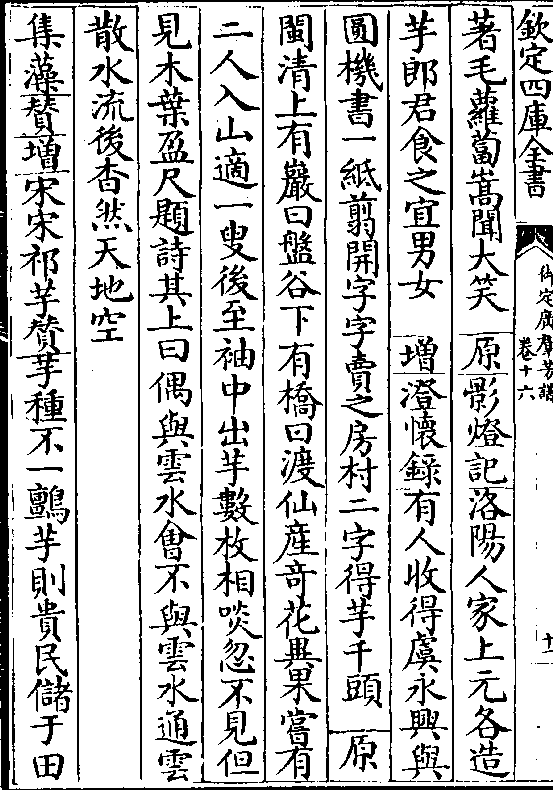 欽定四庫全書
御定廣羣芳譜
卷十六
十一
著毛蘿蔔嵩聞大笑 原影燈記洛陽人家上元各造
芋郎君食之宜男女 增澄懷錄有人收得虞永興與
圓機書一紙剪開字字賣之房村二字得芋千頭 原
閩清上有巖曰盤谷下有橋曰渡仙産竒花異果嘗有
二人入山適一叟後至袖中出芋數枚相啖忽不見但
見木葉盈尺題詩其上曰偶與雲水會不與雲水通雲
散水流後杳然天地空
集藻贊增宋宋祁芋贊芋種不一鸇芋則貴民儲于田